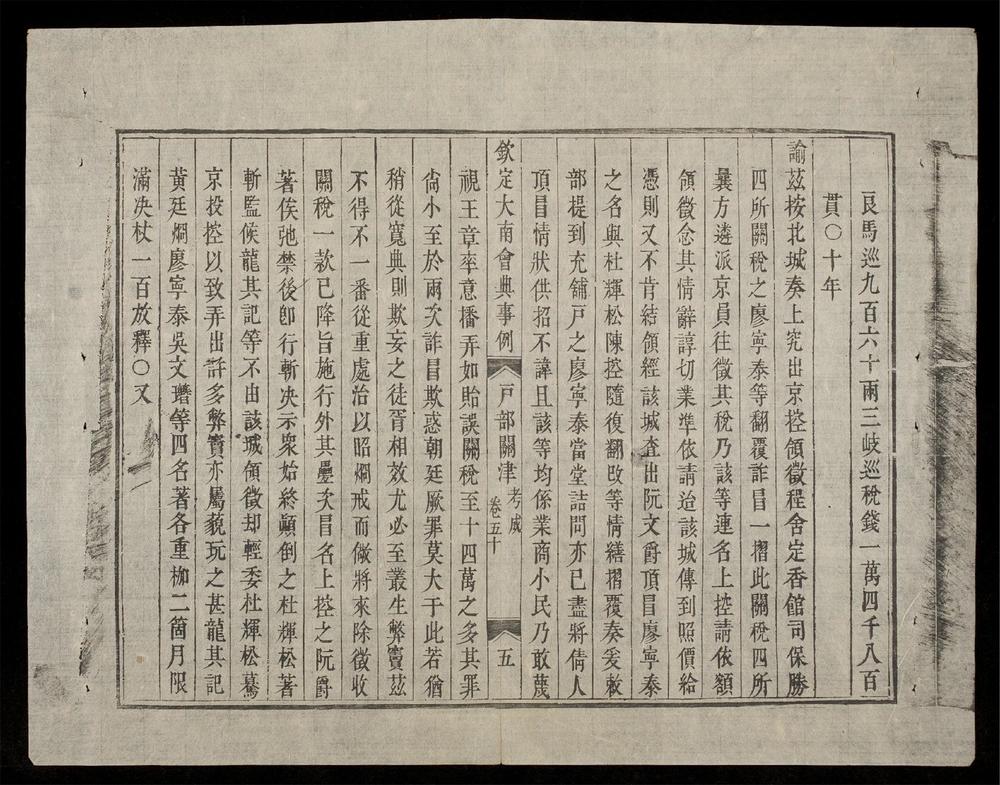 良馬巡九百六十兩三岐巡稅錢一萬四千八百
貫〇十年
諭茲按北城奏上究出京控領徵程舍定香館司保勝
四所關稅之廖寧泰等翻覆詐冒一摺此關稅四所
曩方遴派京員往徵其稅乃該等連名上控請依額
領徵念其情辭諄切業準依請迨該城傳到照價給
憑則又不肯結領經該城查出阮文爵頂冒廖寧泰
之名與杜輝松陳控隨復翻改等情繕摺覆奏爰敕
部提到充舖戸之廖寧泰當堂詰問亦已盡將倩人
頂冒情狀供招不諱且該等均係業商小民乃敢蔑
欽定大南會典事例 戸部關津 考成 卷五十 五
視王章率意播弄如貽誤關稅至十四萬之多其罪
尙小至於兩次詐冒欺惑朝廷厥罪莫大于此若猶
稍從寬典則欺妄之徒胥相效尤必至叢生弊竇茲
不得不一番從重處治以昭烱戒而儆將來除徵收
關稅一款已降旨施行外其疊次冒名上控之阮爵
著俟弛禁後卽行斬決示眾始終顚倒之杜輝松著
斬監候龍其記等不由該城領徵却輕委杜輝松驀
京投控以致弄出許多弊竇亦屬藐玩之甚龍其記
黃廷烱廖寧泰吳文瑨等四名著各重枷二箇月限
滿决杖一百放釋〇又